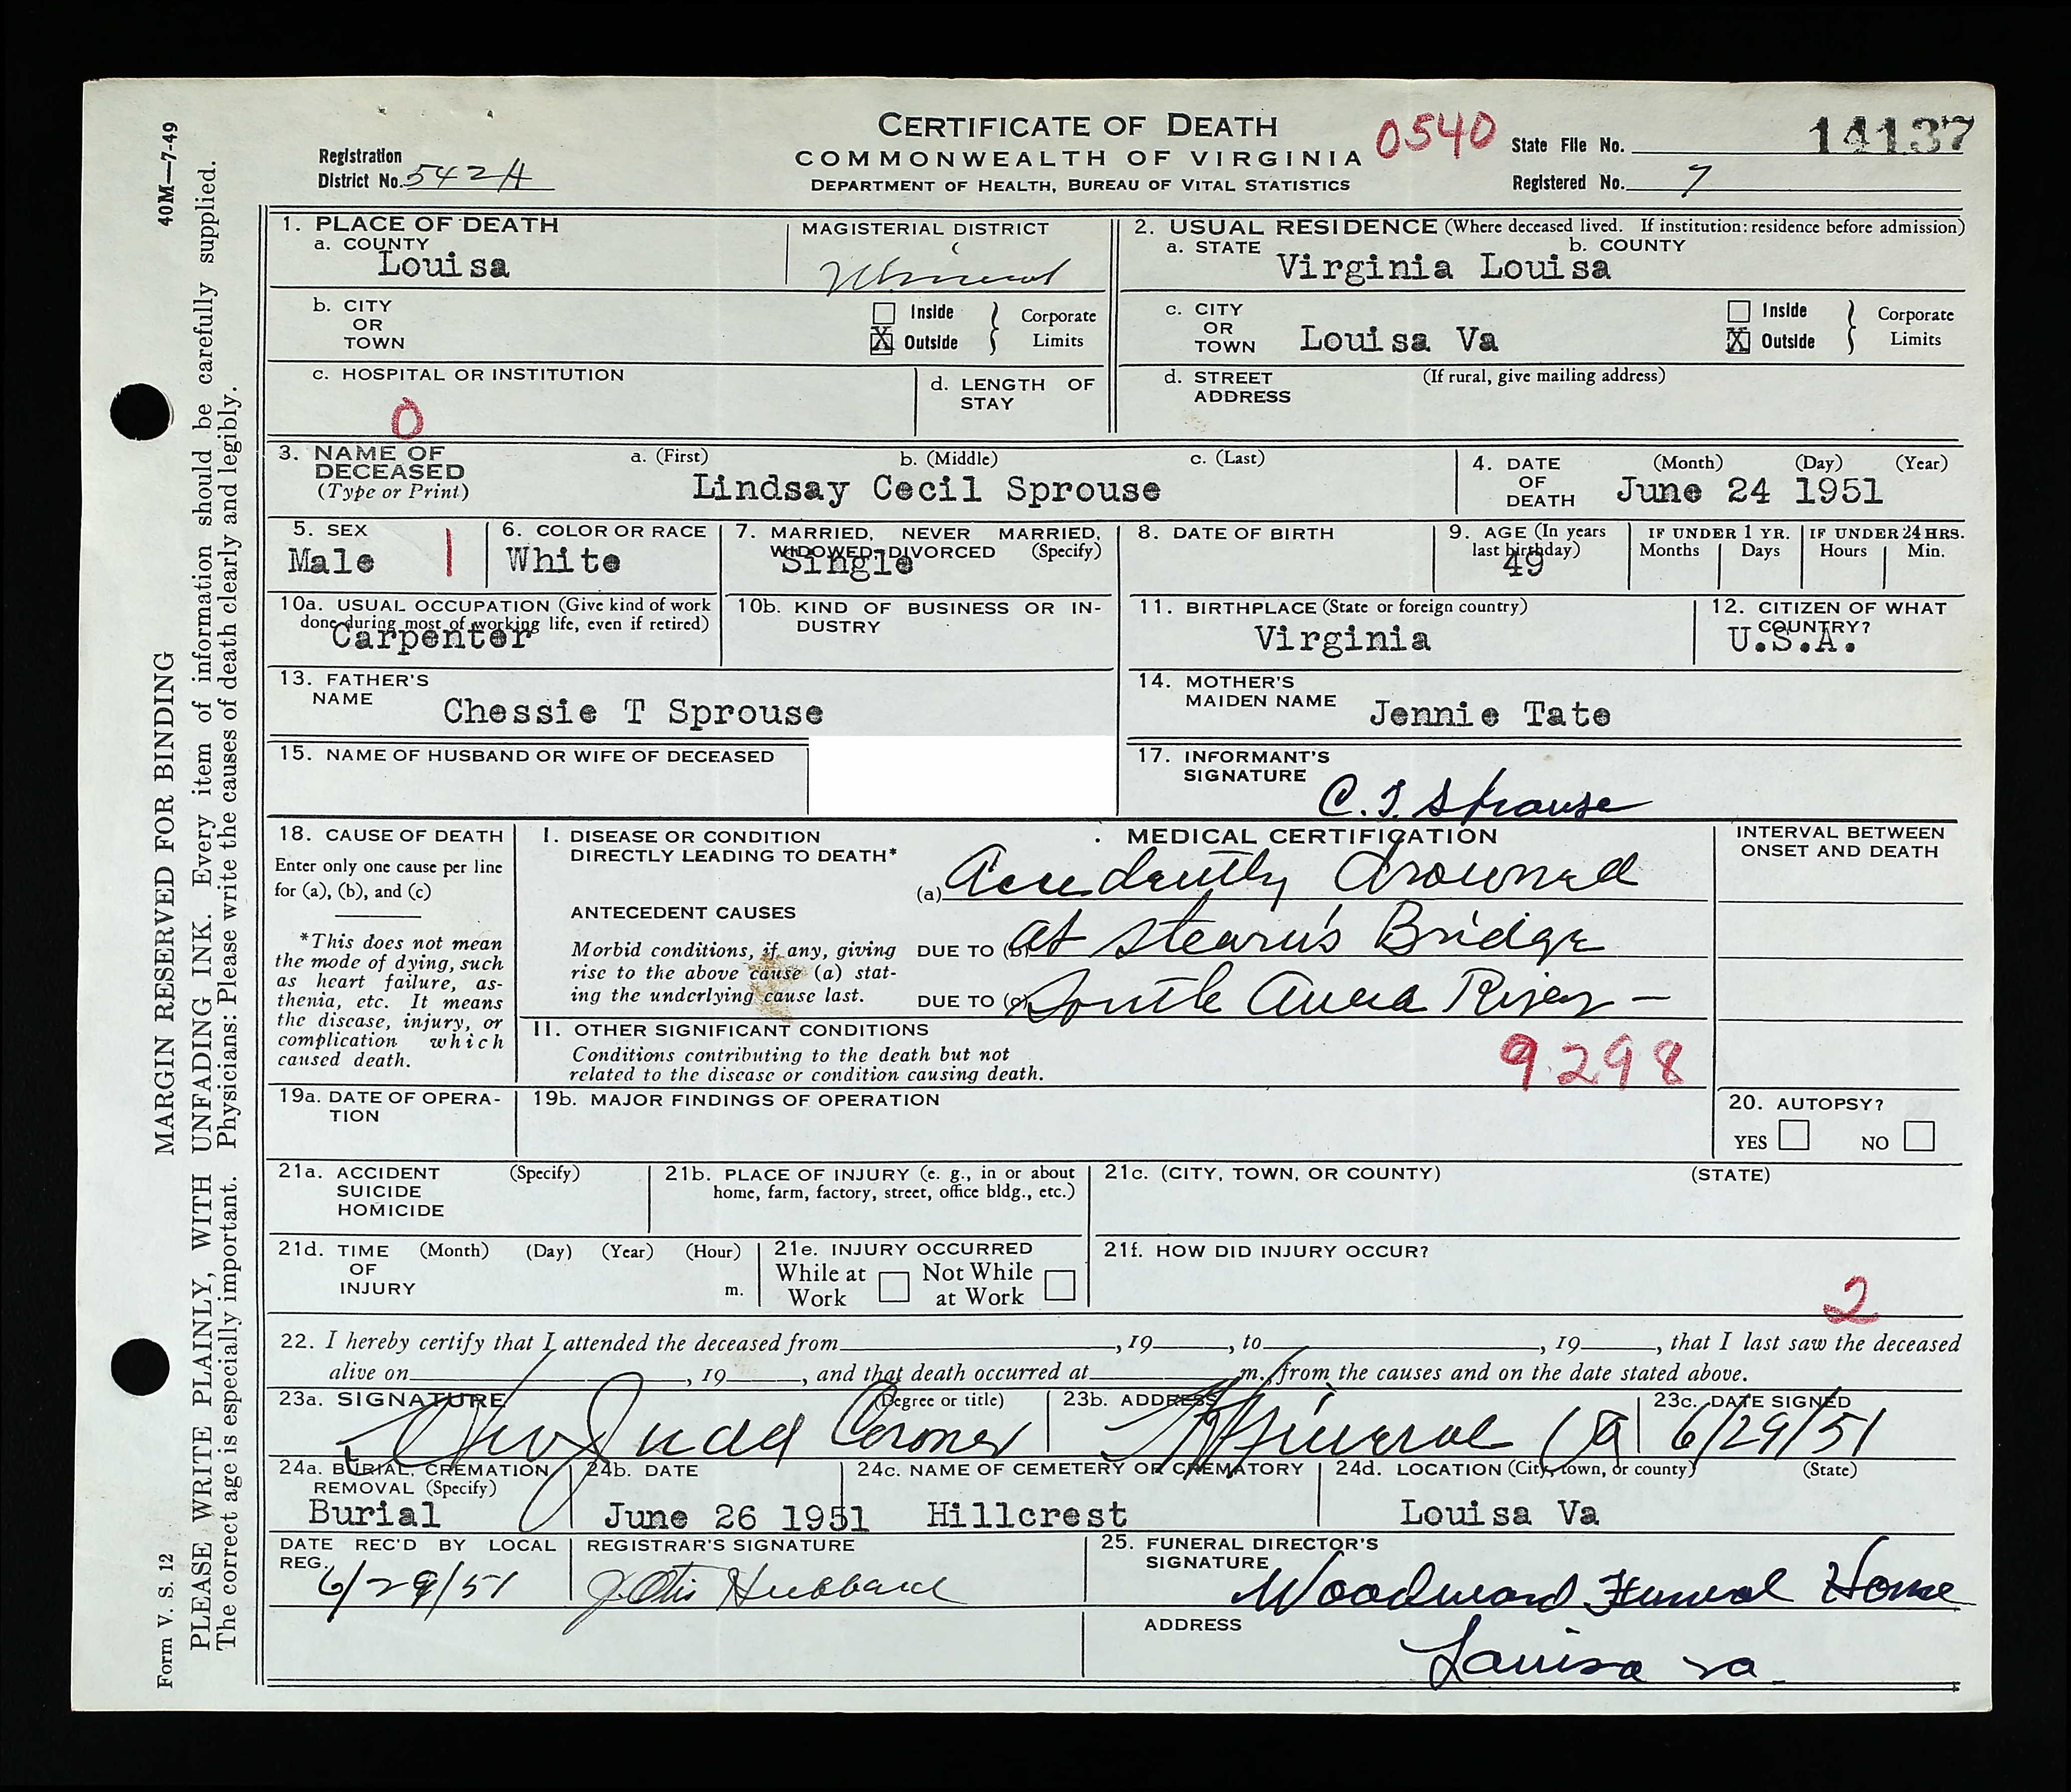 CERTIFICATE OF DEATH
COMMONWEALTH OF VIRGINIA
DEPARTMENT OF HEALTH, BUREAU OF VITAL STATISTICS
0540
State File No. 14137
Registered No. 7
Registration
District No. 542A
40M—7-49
1. PLACE OF DEATH
a. COUNTY
Louisa
MAGISTERIAL DISTRICT
Mineral
2. USUAL RESIDENCE (Where deceased lived. If institution: residence before admission)
a. STATE b. COUNTY
Virginia Louisa
b. CITY
OR
TOWN
Inside
X Outside
Corporate
Limits
c. CITY
OR
TOWN Louisa Va
Inside
X Outside
Corporate
Limits
c. HOSPITAL OR INSTITUTION
0
d. LENGTH OF
STAY
d. STREET (If rural, give mailing address)
ADDRESS
3. NAME OF
DECEASED
(Type or Print)
a. (First) b. (Middle) c. (Last)
Lindsay Cecil Sprouse
4. DATE
OF
DEATH
(Month) (Day) (Year)
June 24 1951
5. SEX
Male
6. COLOR OR RACE
White
7. MARRIED, NEVER MARRIED,
WIDOWED, DIVORCED (Specify)
Single
8. DATE OF BIRTH
9. AGE (In years
last birthday)
49
IF UNDER 1 YR.
Months Days
IF UNDER 24 HRS.
Hours Min.
10a. USUAL OCCUPATION (Give kind of work
done during most of working life, even if retired)
Carpenter
10b. KIND OF BUSINESS OR IN-
DUSTRY
11. BIRTHPLACE (State or foreign country)
Virginia
12. CITIZEN OF WHAT
COUNTRY?
U.S.A.
13. FATHER'S
NAME
Chessie T Sprouse
14. MOTHER'S
MAIDEN NAME
Jennie Tate
15. NAME OF HUSBAND OR WIFE OF DECEASED
17. INFORMANT'S
SIGNATURE
C. T. Sprouse
18. CAUSE OF DEATH
Enter only one cause per line
for (a), (b), and (c)
*This does not mean
the mode of dying, such
as heart failure, as-
thenia, etc. It means
the disease, injury, or
complication which
caused death.
MEDICAL CERTIFICATION
I. DISEASE OR CONDITION
DIRECTLY LEADING TO DEATH*
(a) Accidently Drowned
ANTECEDENT CAUSES
Morbid conditions, if any, giving
rise to the above cause (a) stat-
ing the underlying cause last.
DUE TO (b) at Stearn's Bridge
DUE TO (c) South Anna River —
II. OTHER SIGNIFICANT CONDITIONS
Conditions contributing to the death but not
related to the disease or condition causing death.
9298
INTERVAL BETWEEN
ONSET AND DEATH
19a. DATE OF OPERA-
TION
19b. MAJOR FINDINGS OF OPERATION
20. AUTOPSY?
YES NO
21a. ACCIDENT (Specify)
SUICIDE
HOMICIDE
21b. PLACE OF INJURY (e. g., in or about
home, farm, factory, street, office bldg., etc.)
21c. (CITY, TOWN, OR COUNTY) (STATE)
21d. TIME (Month) (Day) (Year) (Hour)
OF
INJURY m.
21e. INJURY OCCURRED
While at
Work
Not While
at Work
21f. HOW DID INJURY OCCUR?
2
22. I hereby certify that I attended the deceased from , 19 , to , 19 , that I last saw the deceased
alive on , 19 , and that death occurred at m., from the causes and on the date stated above.
23a. SIGNATURE (Degree or title)
Judd Coroner
23b. ADDRESS
Mineral Va
23c. DATE SIGNED
6/29/51
24a. BURIAL, CREMATION
REMOVAL (Specify)
Burial
24b. DATE
June 26 1951
24c. NAME OF CEMETERY OR CREMATORY
Hillcrest
24d. LOCATION (City, town, or county) (State)
Louisa Va
DATE REC'D BY LOCAL
REG.
6/29/51
REGISTRAR'S SIGNATURE
J. Otis Hubbard
25. FUNERAL DIRECTOR'S
SIGNATURE
Woodward Funeral Home
ADDRESS
Louisa Va
Form V. S. 12
MARGIN RESERVED FOR BINDING
PLEASE WRITE PLAINLY, WITH UNFADING INK. Every item of information should be carefully supplied.
The correct age is especially important. Physicians: Please write the causes of death clearly and legibly.